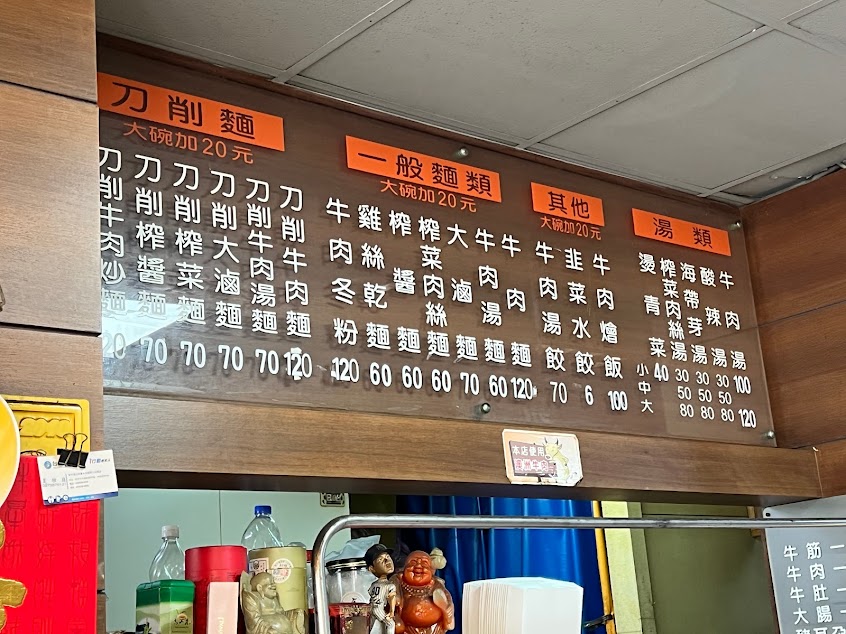 刀削麵
大碗加20元
刀削牛肉炒麵 20
刀削榨醬麵 70
刀削榨菜麵 70
刀削大滷麵 70
刀削牛肉湯麵 70
刀削牛肉麵 120
一般麵類
大碗加20元
牛肉冬粉 120
雞絲乾麵 60
榨醬麵 60
榨菜肉絲麵 60
大滷麵 70
牛肉湯麵 60
牛肉麵 120
其他
大碗加20元
牛肉湯餃 70
韭菜水餃 6
牛肉燴飯 100
湯類
燙青菜 40
小中大
榨菜肉絲湯 30 50 80
海帶芽湯 30 50 80
酸辣湯 30 50 80
牛肉湯 100 120
本店使用
牛筋
牛肉
牛肚
大腸